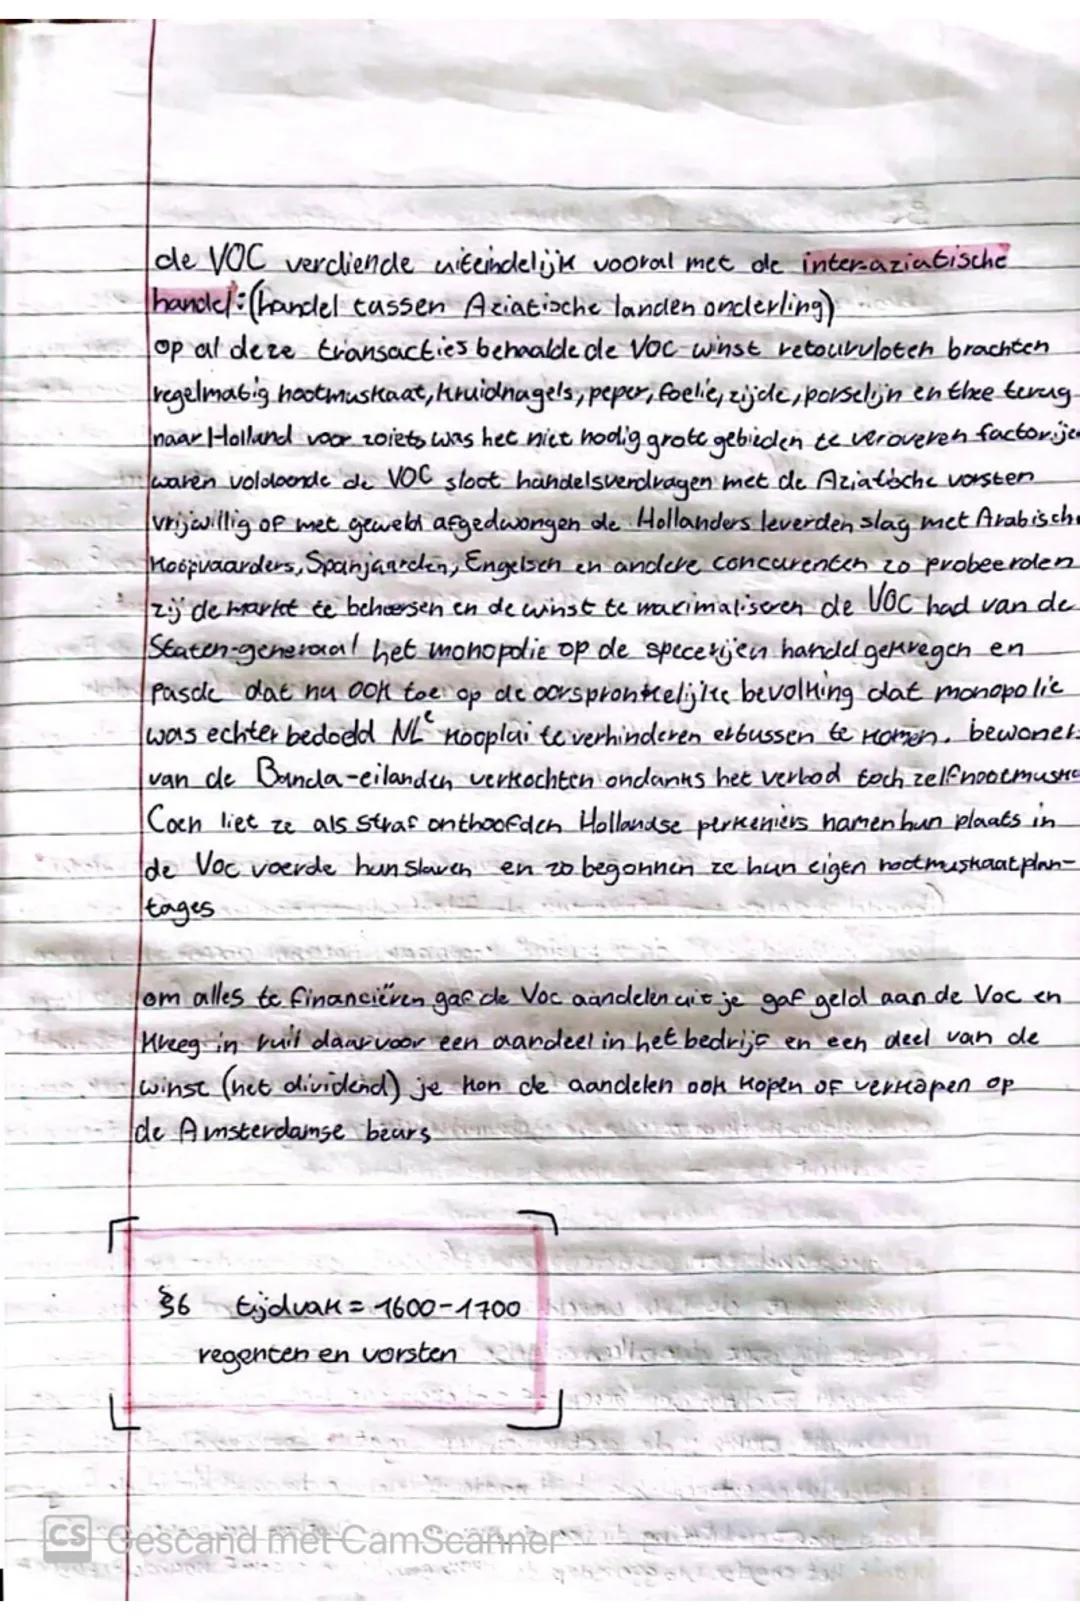 de VOC verdiende uiteindelijk vooral met de inter-aziatische
handel: (handel tussen Aziatische landen onderling)
op al deze transacties behaalde de VOC winst retourvloten brachten
regelmatig nootmuskaat, kruidnagels, peper, foelie, zijde, porselijn en thee terug
naar Holland voor zoiets was het niet nodig grote gebieden te veroveren factorijen
waren voldoende de VOC sloot handelsverdragen met de Aziatische vorsten
vrijwillig of met geweld afgedwongen de Hollanders leverden slag met Arabische
koopvaarders, Spanjaarden, Engelsen en andere concurenten zo probeerden
zij de markt te beheersen en de winst te maximaliseren de VOC had van de
Staten-generaal het monopolie op de specerijen handel gekregen en
paste dat nu ook toe op de oorspronkelijke bevolking dat monopolie
was echter bedoeld NLe kooplui te verhinderen ertussen te komen. bewoners
van de Banda-eilanden verkochten ondanks het verbod toch zelf nootmuska
Coen liet ze als straf onthoofden Hollandse perkeniers namen hun plaats in
de Voc voerde hun slaven en zo begonnen ze hun eigen nootmuskaatplan-
tages
om alles te financiëren gaf de Voc aandelen uit je gaf geld aan de Voc en
kreeg in ruil daarvoor een aandeel in het bedrijf en een deel van de
winst (het dividend) je kon de aandelen ook kopen of verkopen op
de Amsterdamse beurs
§6 tijdvak = 1600-1700
regenten en vorsten
CS Gescand met CamScanner